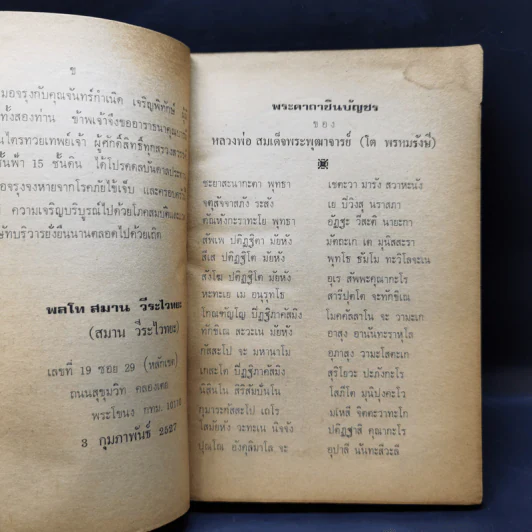 ช
มอจรุงกับคุณจันทร์กำเนิด เจริญพิทักษ์ ผู้
ทั้งสองท่าน ข้าพเจ้าจึงขออาราธนาคุณ
นไตรทวยเทพย์เจ้า ผู้ศักดิ์สิทธิ์ทุก
ชั้นฟ้า 15 ชั้นดิน ได้โปรดดลบันดาลประทาน
อจรุงจงหายจากโรคภัยไข้เจ็บ และครอบครัว
ความเจริญบริบูรณ์ไปด้วยโภคสมบัติและ
ษัทบริวารยั่งยืนนานตลอดไปด้วยเถิด
พลโท สมาน วีระไวทยะ
(สมาน วีระไวทยะ)
เลขที่ 19 ซอย 29 (หลักเขต)
ถนนสุขุมวิท คลองเตย
พระโขนง กทม. 10110
3 กุมภาพันธ์ 2527
พระคาถาชินบัญชร
ของ
หลวงพ่อ สมเด็จพระพุฒาจารย์ (โต พรหมรังษี)
ชะยาสะนากะตา พุทธา เชตะวา มารัง สะวาหะนัง
จตุสัจจาสภัง ระสัง เย ปิวิงสุ นราสภา
ตัณหังกะราทะโย พุทธา อัฏฐะ วีสะติ นายะกา
สัพเพ ปติฏฐิตา มัยหัง มัตถะเก เต มุนิสสะรา
สีเส ปติฏฐิโต มัยหัง พุทโธ ธัมโม ทะวิโลจะเน
สังโฆ ปติฏฐิโต มัยหัง อุเร สัพพะคุณากะโร
หะทะเย เม อนุรุทโธ สารีปุตโต จะทักขิเณ
โกณฑัญโญ ปิฏฐิภาคัสมิง โมคคัลลาโน จะ วามะเก
ทักขิเณ สะวะเน มัยหัง อาสุง อานันทะราหุโล
กัสสะโป จะ มหานาโม อุภาสุง วามะโสตะเก
เกสะโต ปิฏฐิภาคัสมิง สุริโยวะ ปะภังกะโร
นิสินโน สิริสัมปันโน โสภีโต มุนิปุงคะโว
กุมาระกัสสะโป เถโร มเหสี จิตตะวาทะโก
โสมัยหัง วะทะเน นิจจัง ปติฏฐาสิ คุณากะโร
ปุณโณ อังคุลิมาโล จะ อุปาลี นันทะสีวะลี